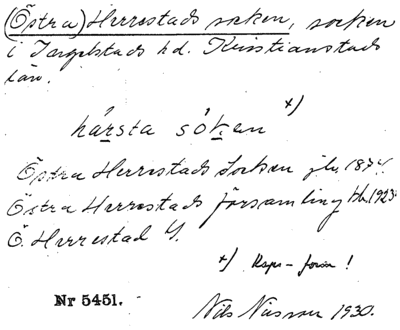 (Östra) Herrestads socken, socken
i Ingelstads hd. Kristianstads
län.
härsta sókən x)
Östra Herrestads Socken jb. 1874.
Östra Herrestads församling kb. 1923
Ö. Herrestad
x) Rspr-form!
Nr 5451.
Nils Nilsson 1930.